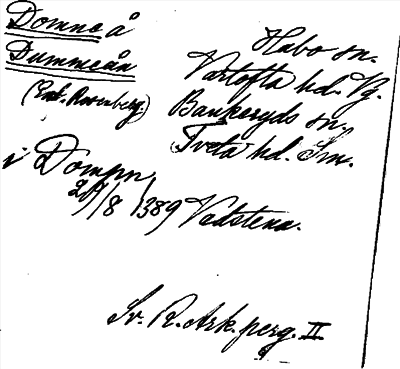 Domneå
Dummeån
(Enl. Rosenberg.)
Habo sn.
Vartofta hd. Vg.
Bankeryds sn,
Tveta hd. Sm.
i Dompn,
20/8 1389 Vadstena.
Sv. R. Ark. perg. II